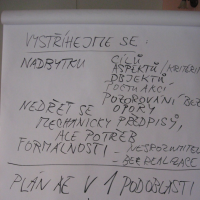 VYSTŘÍHEJME SE:
NADBYTKU CÍLŮ
ASPEKTŮ/KRITÉRIÍ
OBJEKTŮ
POZOROVÁNÍ BEZ
NEDRŽET SE OPORY
MECHANICKY PŘEDPISŮ,
ALE POTŘEB
FORMÁLNOSTI -
- BEZ REALIZACE
PLÁN NE V 1 PODOBLASTI